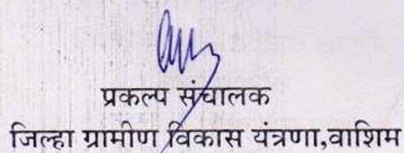 प्रकल्प संचालक
जिल्हा ग्रामीण विकास यंत्रणा,वाशिम